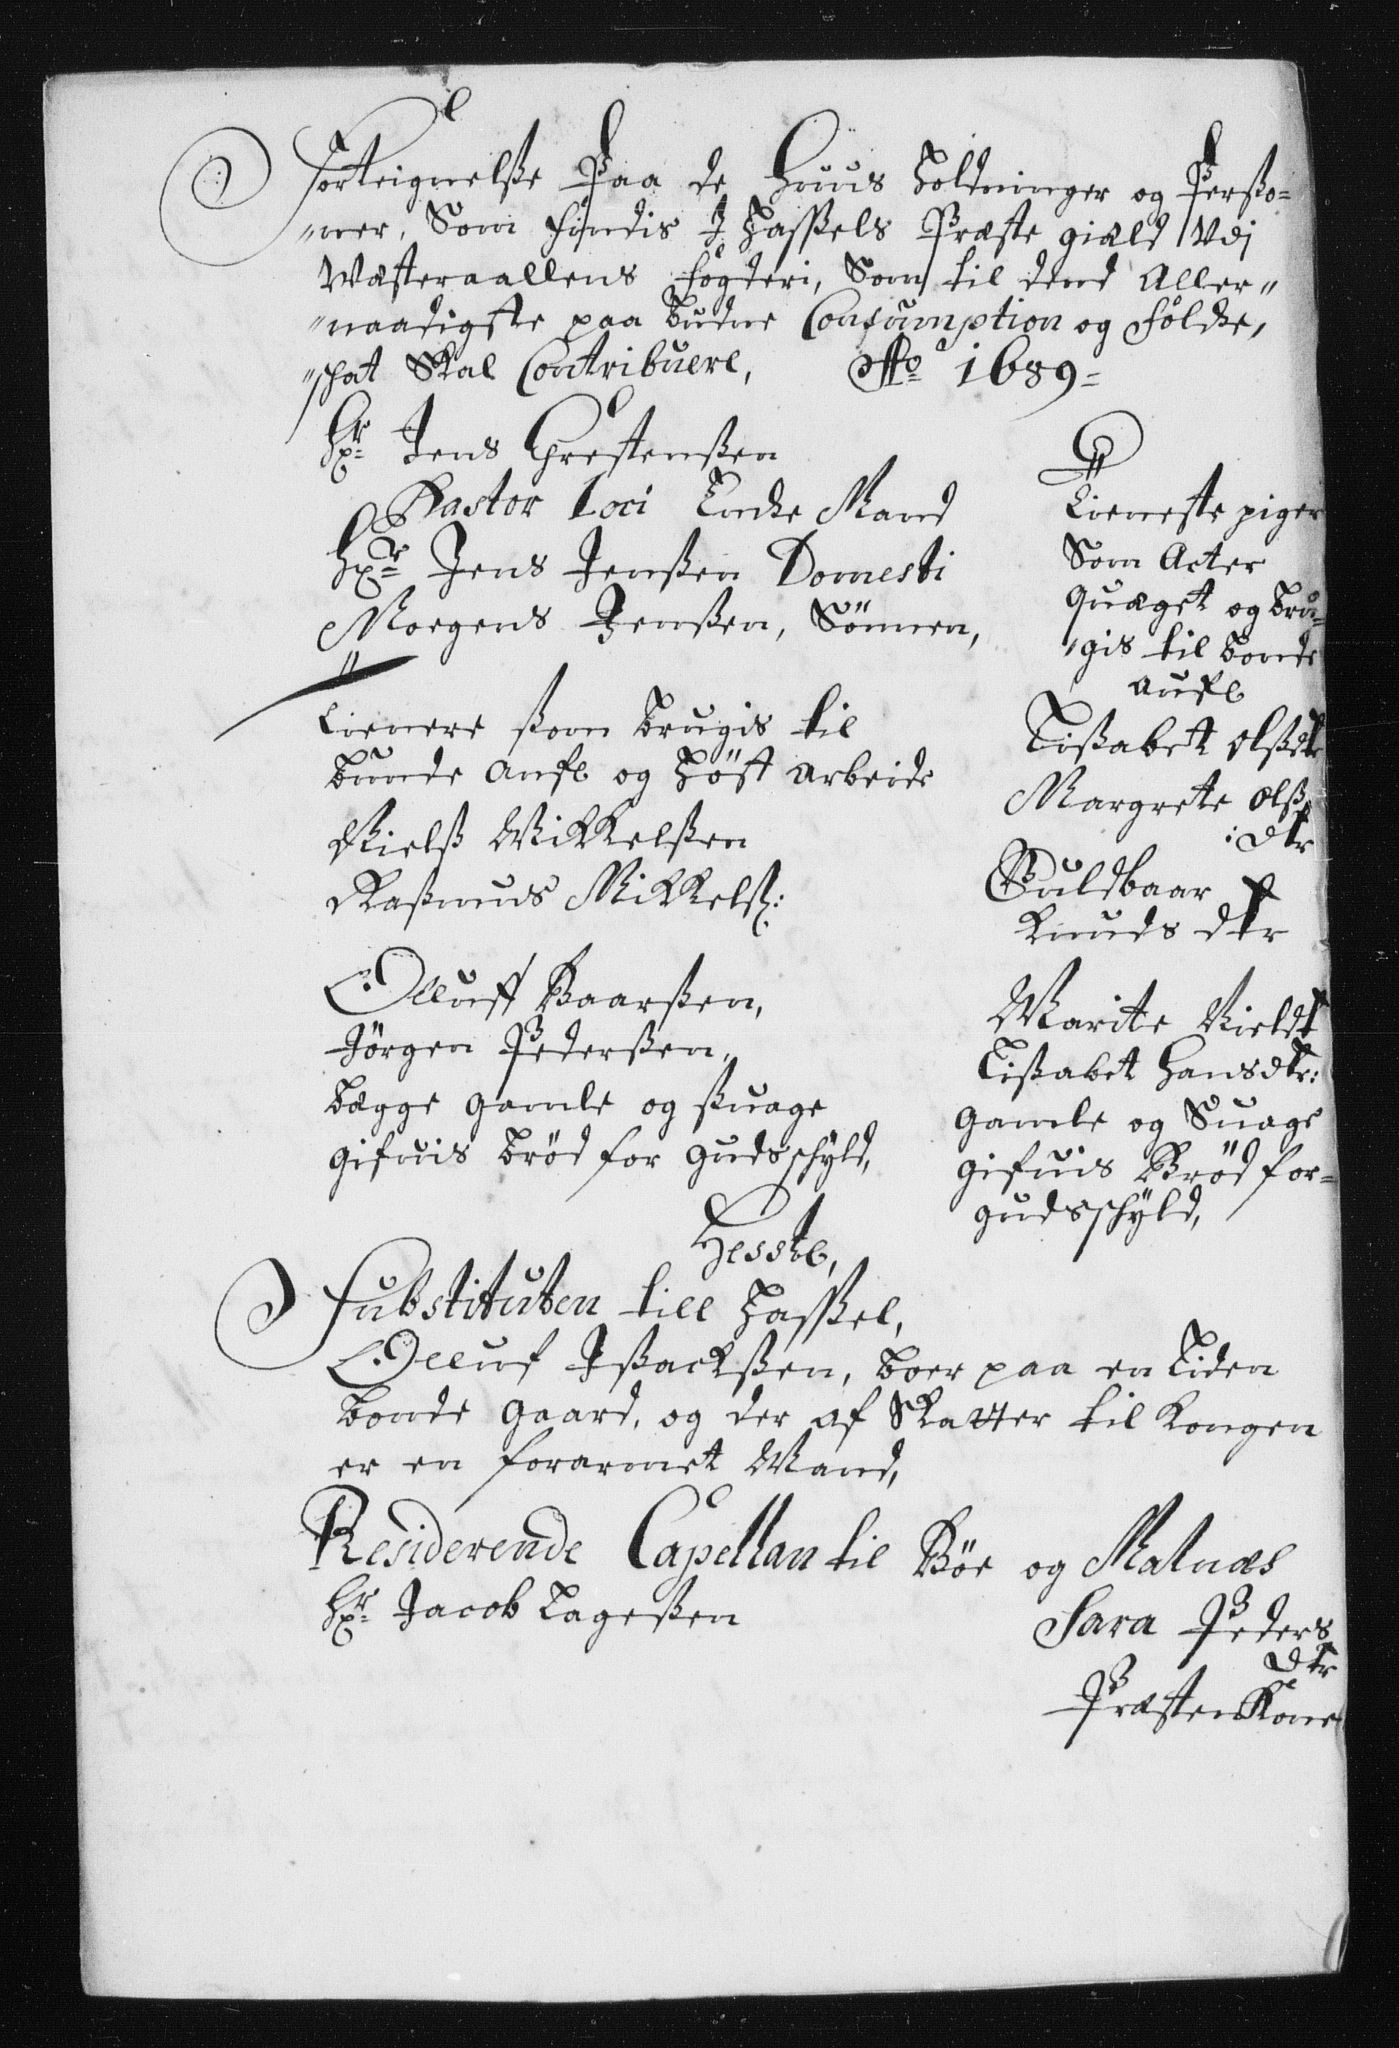 Forteignelsse Paa de Huus holdninger og Persso-
"ner, Som findis I Hassels Præste giæld Vdj
Wæsteraallens fögderi, Som til dend Aller"
"naadigste paa budne Consumption og folcke,
"schat Skal Contribuere, Ao 1689=
Hr: Jens Chrestenssen
Pastor Loci Encke Mand
Hr: Jens Jenssen Domesti
Mogens Jenssen, Sönnen,
Tienere ssom brugis til
bunde aufl og Höst arbeide
Nielss Mikkelssen
Rassmus Mikkelss:
Olluff Baarssen,
Jörgen Pederssen,
begge gamle og ssuage
gifuis bröd for gudsschÿld,
Tieneste piger
Som Acter
Quæget og bru=
"gis til bonde
aufl
Lissabet olssdtr
Margrete olss
:dtr
Guldbaar
Knuds dtr
Marite Nielsdt
Lissabet Hansdtr:
gamle og Suage
gifuis Bröd for=
gudsschÿld,
Hesste,
Substituten till Hassel,
Olluf Issackssen, boer paa en Liden
bonde gaard, og der af Skatter til Kongen
er en forarmet Mand,
Residerende Capellan til Böe og Malnæs
Hr: Jacob Tagessen
Sara Peders
dtr
Præstens Kone